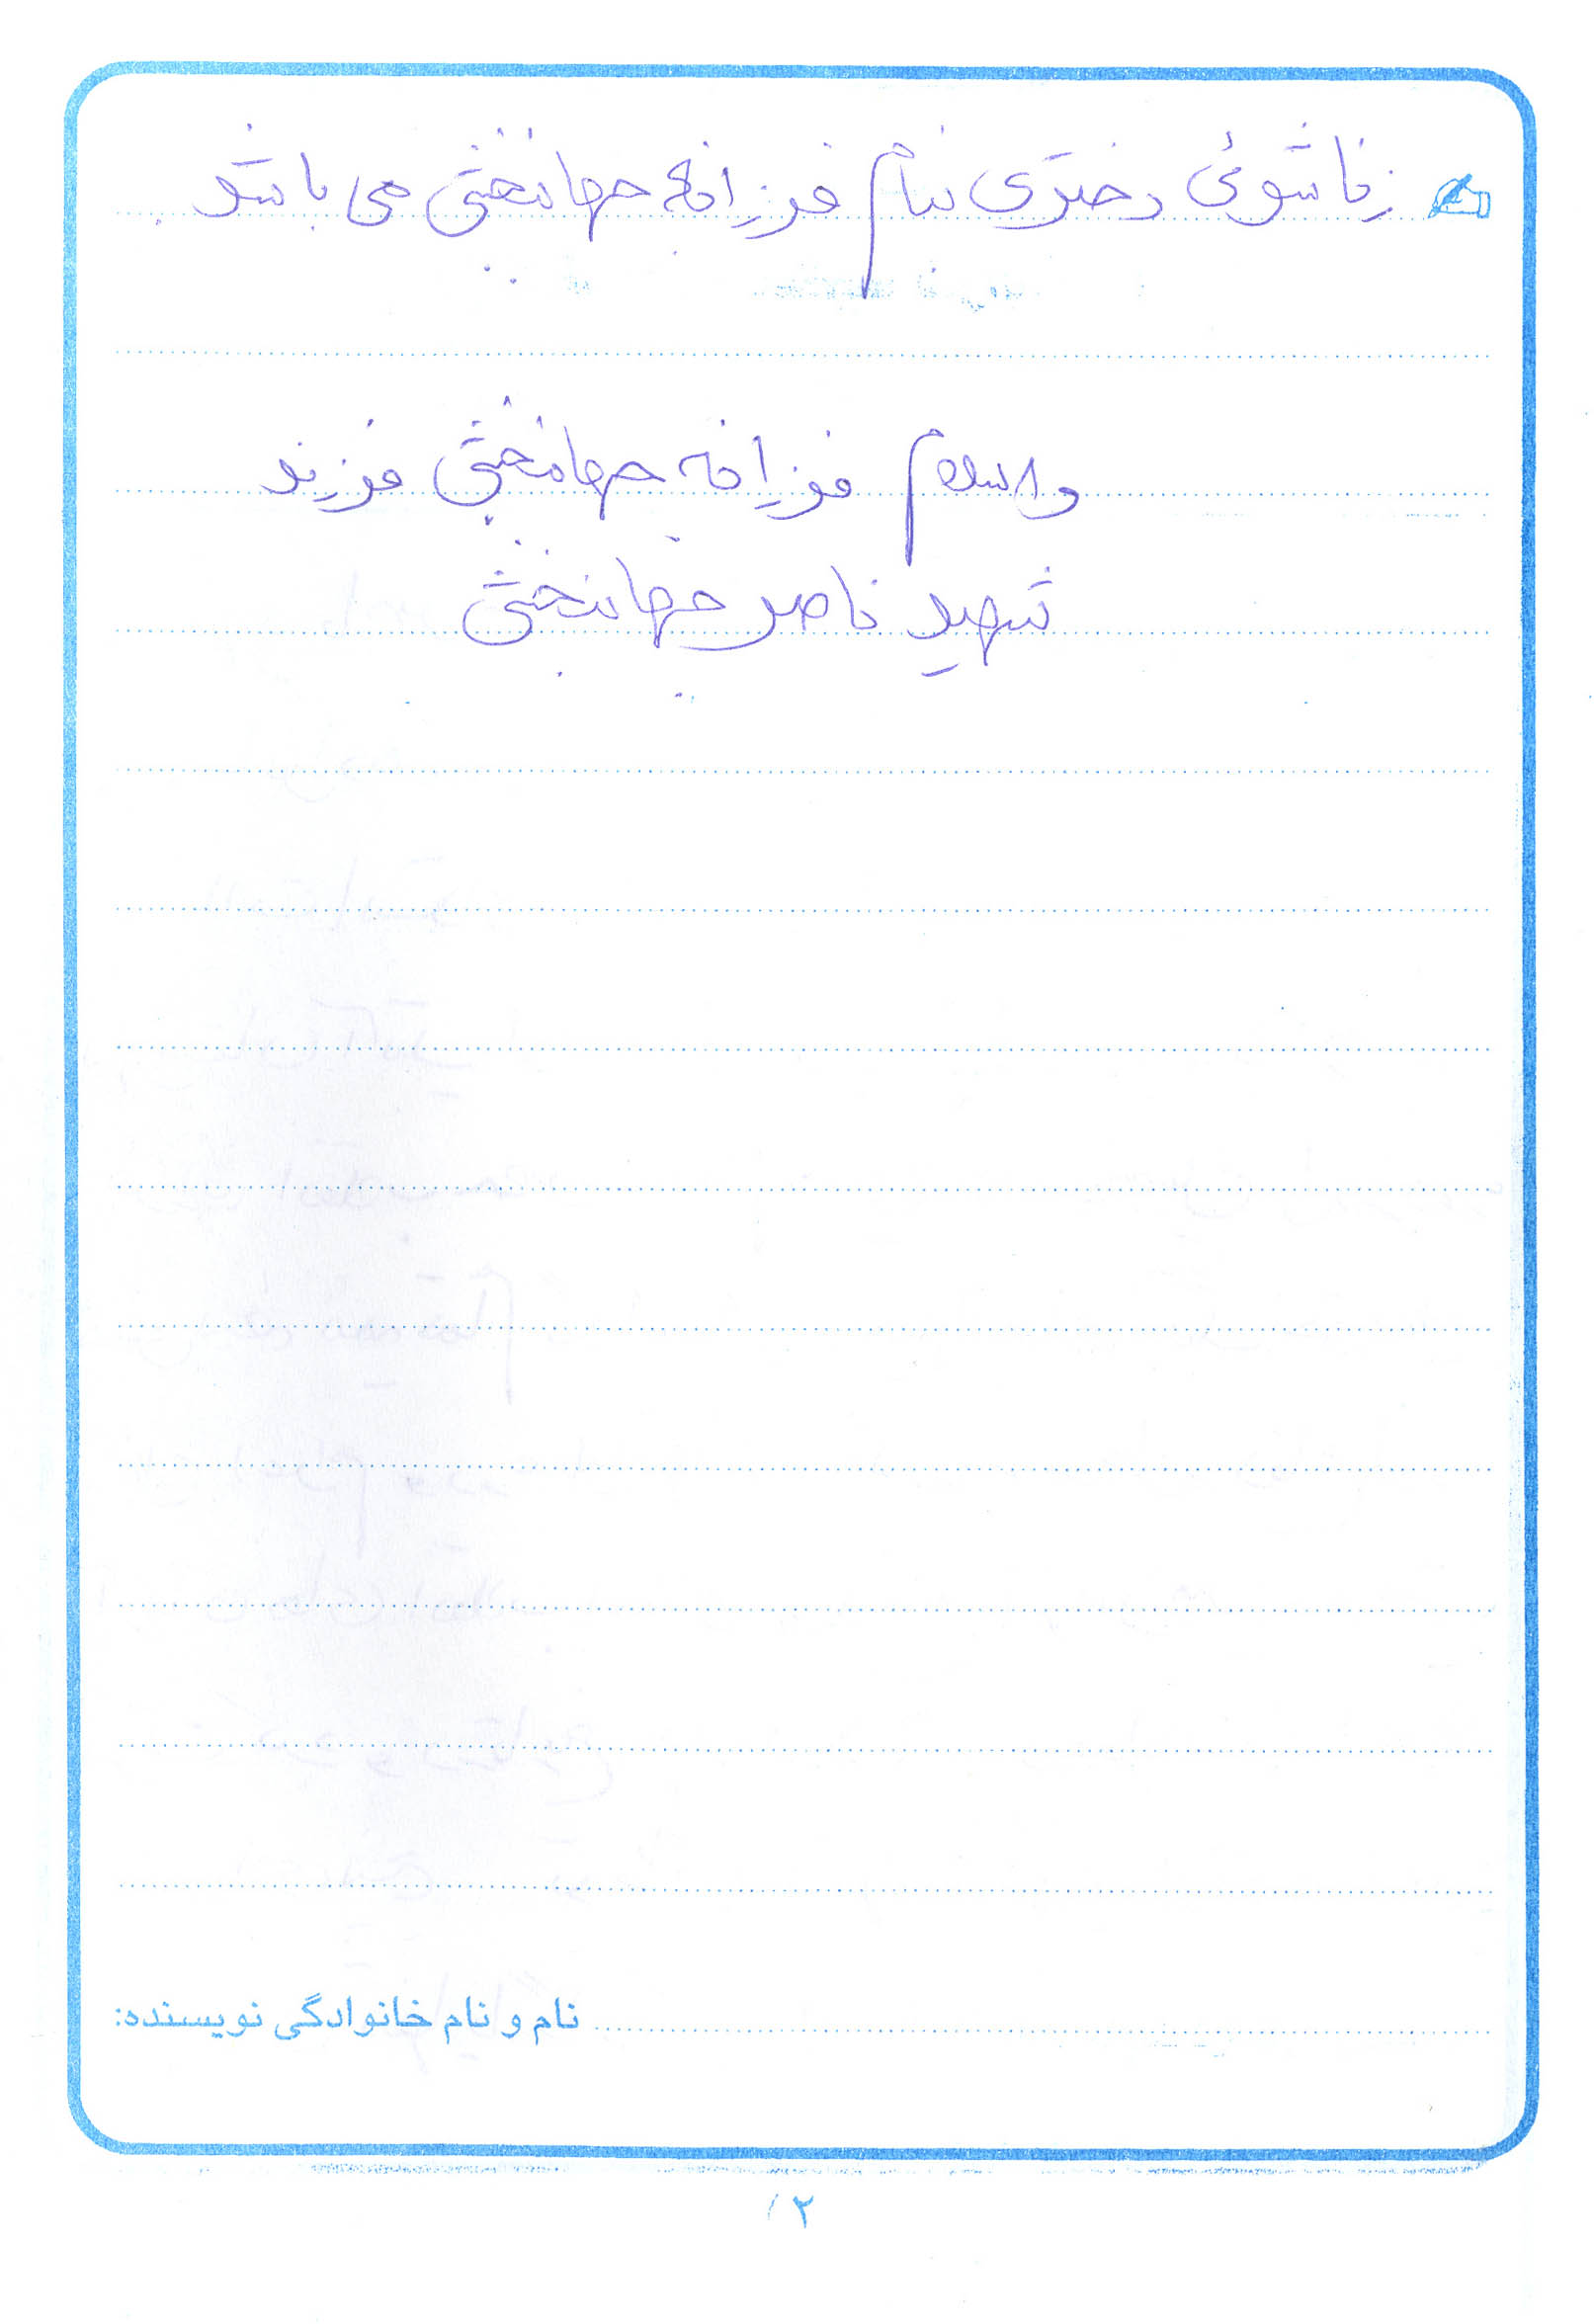 زناشوئی دختری بنام فرزانه جهانبخشی می باشد
والسلام فرزانه جهانبخشی فرزند
شهید ناصر جهانبخشی
نام و نام خانوادگی نویسنده:
۲